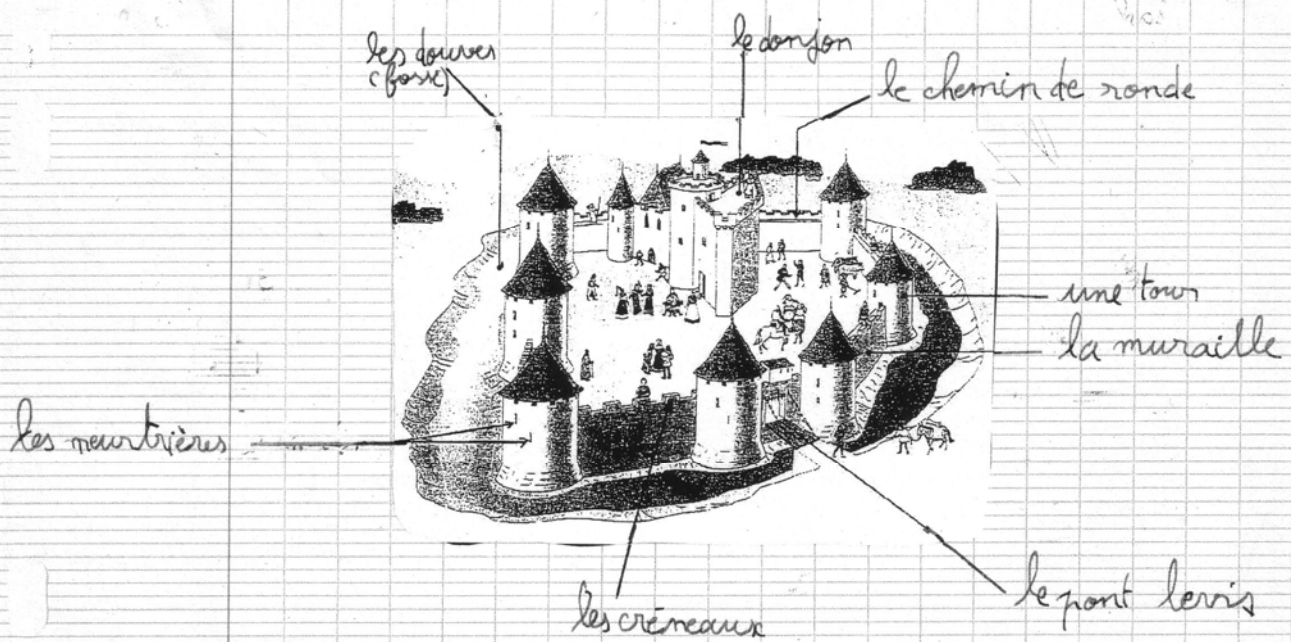 les douves
(fossé)
le donjon
le chemin de ronde
une tour
la muraille
les meurtrières
le pont levis
les créneaux